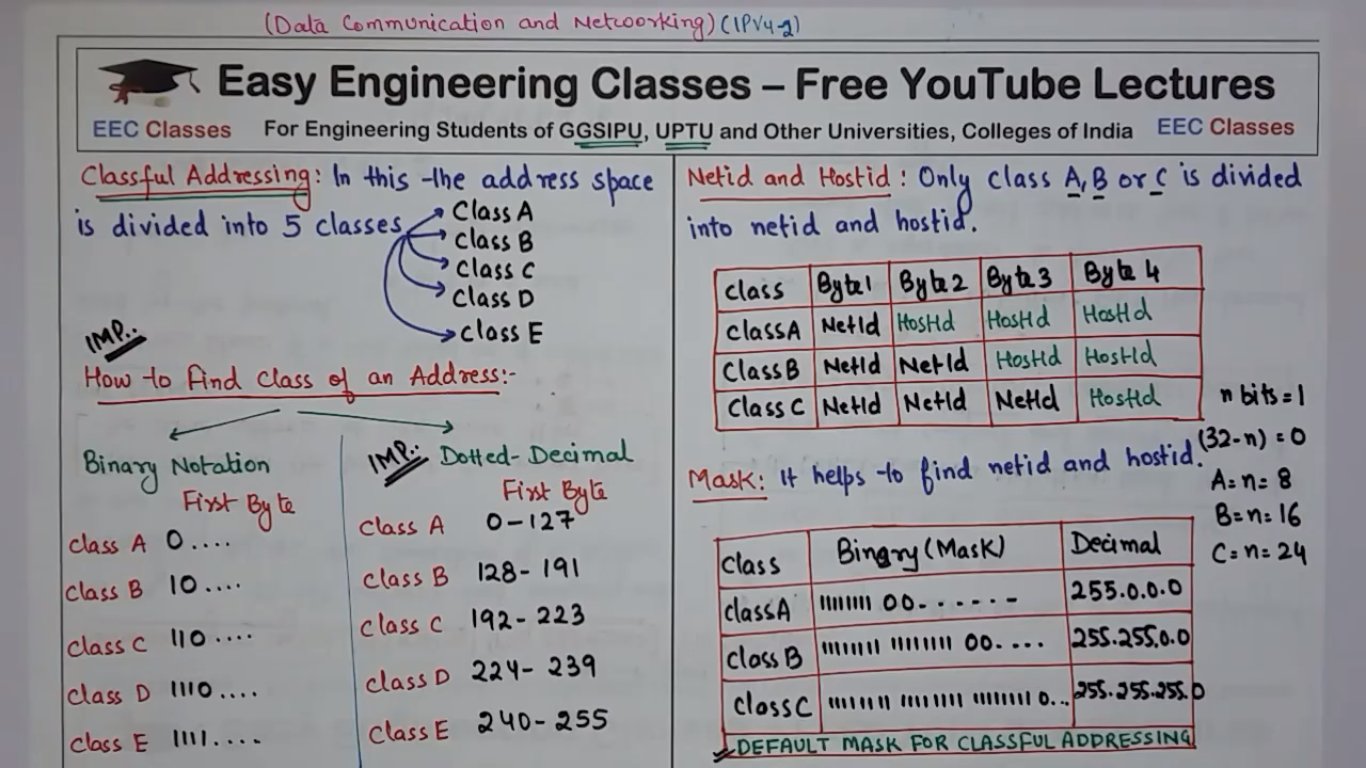 (Data Communication and Networking) (IPV4-2)
Easy Engineering Classes – Free YouTube Lectures
EEC Classes For Engineering Students of GGSIPU, UPTU and Other Universities, Colleges of India EEC Classes
Classful Addressing: In this the address space
is divided into 5 classes
Class A
Class B
Class C
Class D
Class E
IMP.:
How to Find Class of an Address:-
Binary Notation
First Byte
Class A 0....
Class B 10....
Class C 110....
Class D 1110....
Class E 1111....
IMP.: Dotted-Decimal
First Byte
Class A 0-127
Class B 128-191
Class C 192-223
Class D 224-239
Class E 240-255
Netid and Hostid: Only class A, B or C is divided
into netid and hostid.
Class Byte1 Byte2 Byte3 Byte4
Class A NetId HostId HostId HostId
Class B NetId NetId HostId HostId
Class C NetId NetId NetId HostId
n bits=1
(32-n)=0
A=n=8
B=n=16
C=n=24
Mask: It helps to find netid and hostid.
Class Binary(Mask) Decimal
Class A 11111111 00------ 255.0.0.0
Class B 11111111 11111111 00.... 255.255.0.0
Class C 11111111 11111111 11111111 0... 255.255.255.0
DEFAULT MASK FOR CLASSFUL ADDRESSING